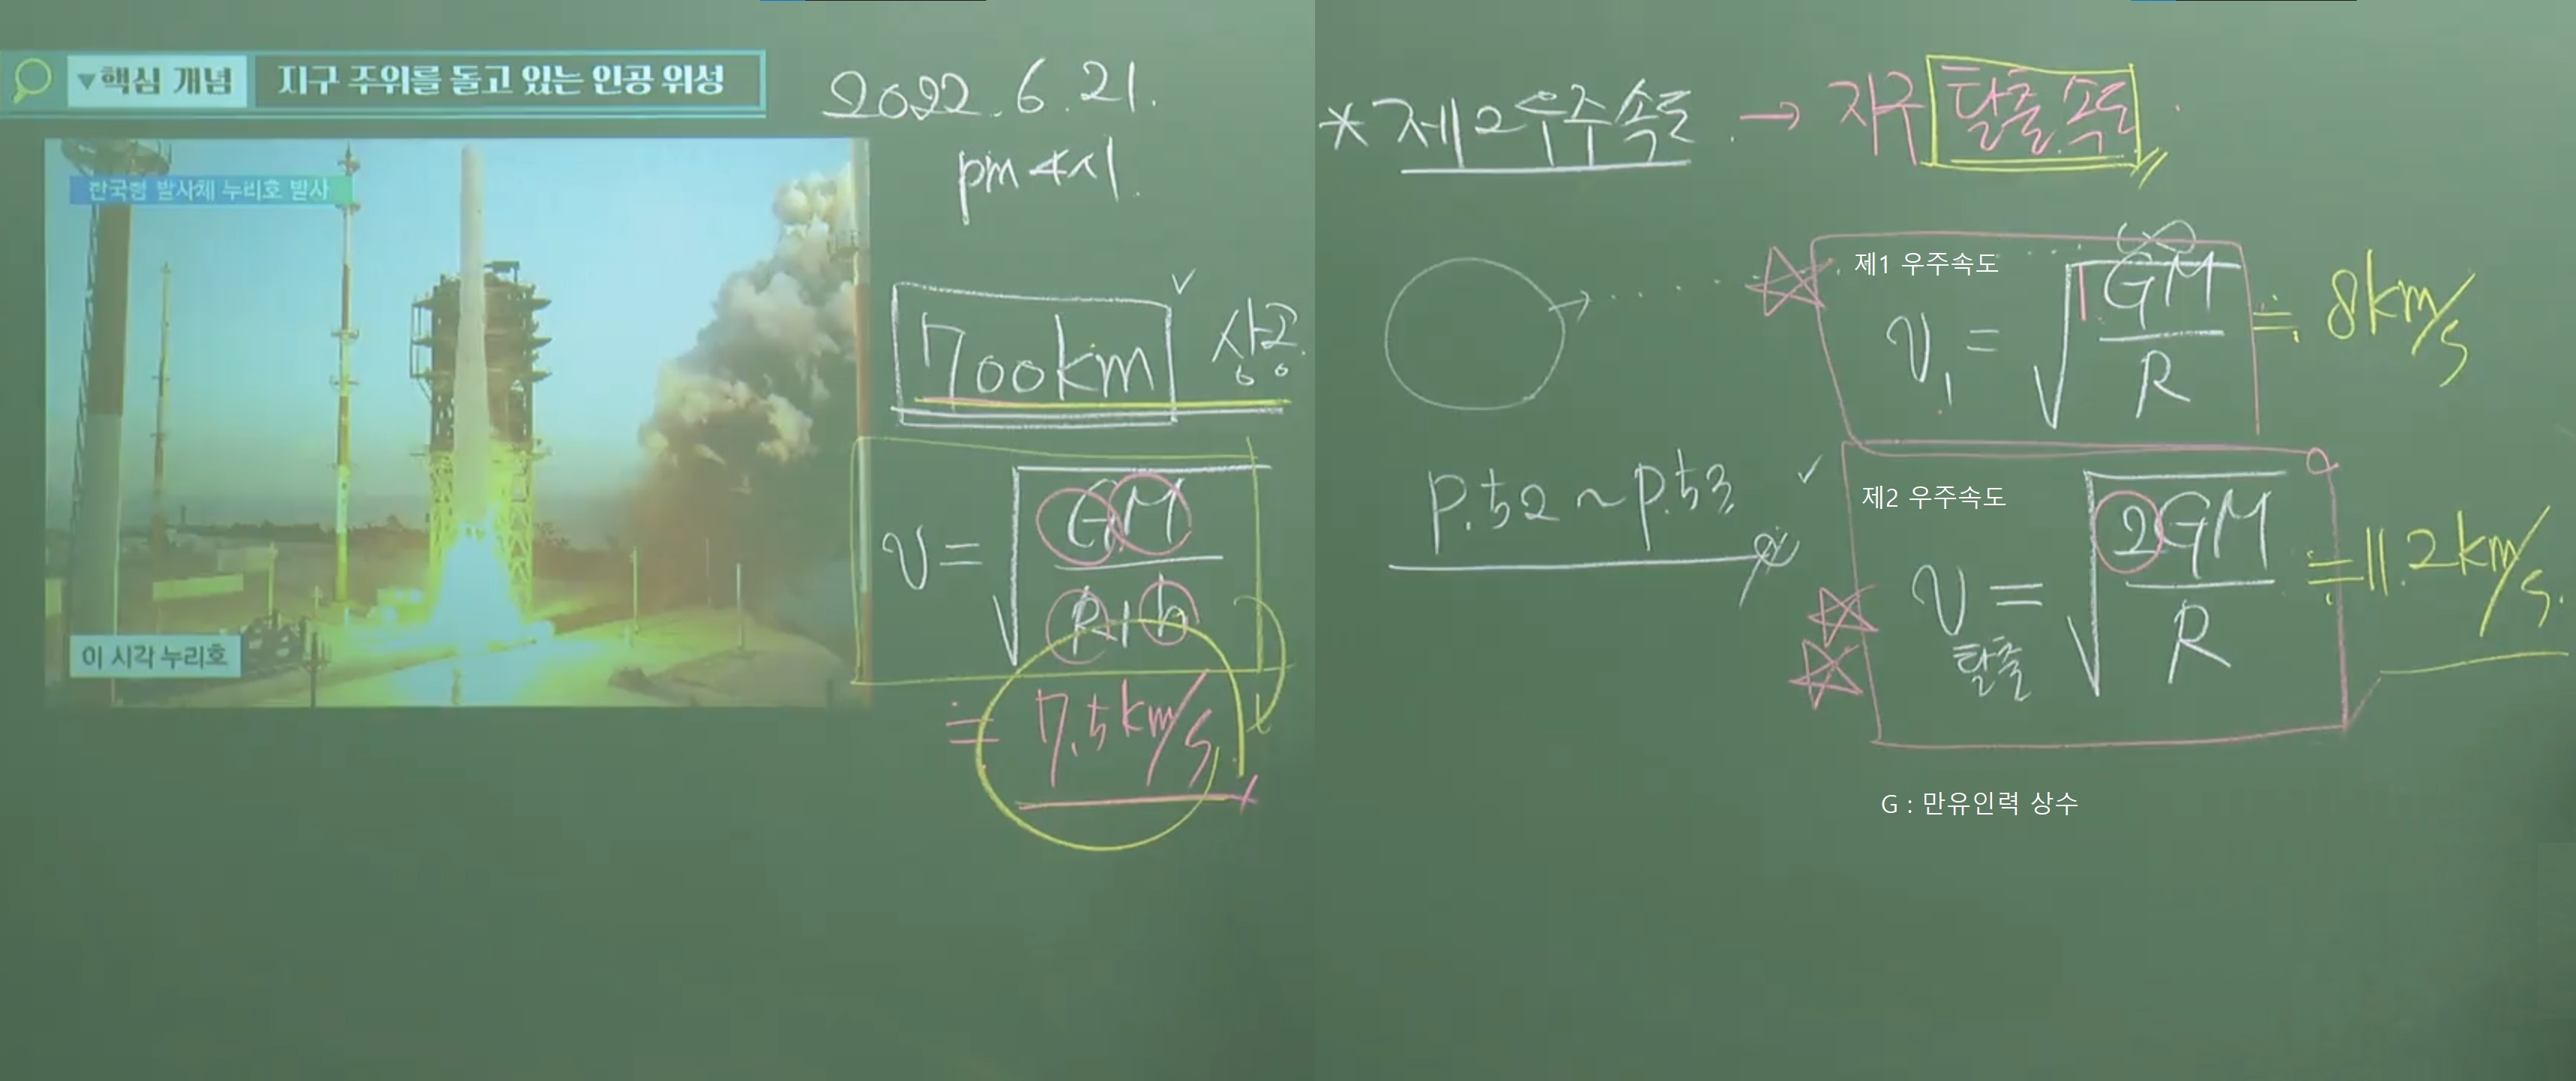 ▼핵심 개념 지구 주위를 돌고 있는 인공 위성
한국형 발사체 누리호 발사
이 시각 누리호
2022.6.21.
pm 4시.
700km 상공.
v = √GM/R+h
≒ 7.5km/s.
*제2우주속도. → 지구 탈출 속도.
제1 우주속도
v₁ = √GM/R ≒ 8km/s
p.52 ~ p.53
제2 우주속도
v탈출 = √2GM/R ≒ 11.2km/s.
G : 만유인력 상수